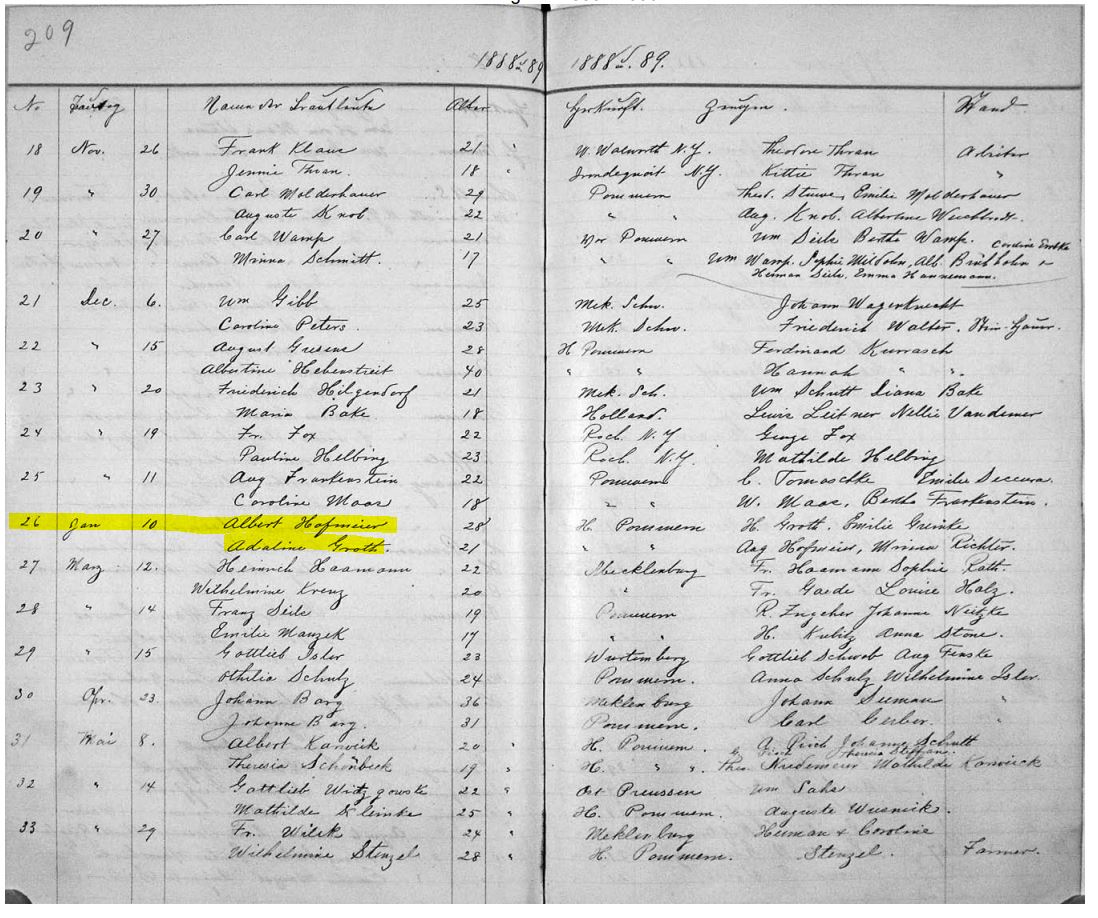 209
1888 u 89 1888 u. 89.
No Alter Herkunft Zeugen Stand
18 Nov. 26 Frank Klaus 21 W. Walworth N.Y. Theodore Thran Arbeiter
Jennie Thran. 18 Irondequoit N.Y. Kittie Thran "
19 " 30 Carl Molderhauer 29 Pommern Theod. Stuwe, Emilie Molderhauer
Auguste Knob. 22 " " Aug. Knob. Albertine
20 " 27 Carl Wamp 21 Vor Pommern Wm Seile Bertha Wamp. Caroline
Minna Schmitt. 17 " " Wm Wamp. Sophie Alb.
Herman Seile. Emma Hannemann.
21 Dec. 6. Wm Gibb 25 Mek. Schw. Johann Wagerknecht
Caroline Peters. 23 Mek. Schw. Friederich Walter.
22 " 15 August Gresens 28 H Pommern Ferdinand Kurrasch
Albertine Hebenstreit 40 " " Hannah " ".
23 " 20 Friederich Hilgendorf 21 Mek. Sch. Wm Schutt Diana Bake
Maria Bake. 18 Holland. Lewis Leitner Nellie Vandemer
24 " 19 Fr. Fox 22 Roch. N.Y. George Fox
Pauline Helbing 23 Roch. N.Y. Mathilde Helbing
25 " 11 Aug Frankenstein 22 Pommern C. Tomaschke Emilie
Caroline Maas 18 " " W. Maas, Bertha Frankenstein.
26 Jan 10 Albert Hofmeier 28 H. Pommern H. Groth. Emilie Greinke
Adaline Groth. 21 " " Aug Hofmeier, Minna Richter.
27 Marz 12. Heinrich Haamann 22 Mecklenburg Fr. Haamann Sophie Rath.
Wilhelmine Krenz 20 " Fr. Gaede Louise Holz.
28 " 14 Franz Seile 19 Pommern R. Johanne Neitzke
Emilie Manzek 17 " " H. Kubitz Anna Stone.
29 " 15 Gottlieb Isler 23 Wurtemberg Gottlieb Schwob Aug Fenske
Othilia Schulz 24 Pommern. Anna Schulz Wilhelmine Isler.
30 Apr. 23. Johann Barg 36 Meklenburg Johann Seeman "
Johanne Barg. 31 Pommern. Carl Gerber.
31 Mai 8. Albert Karwick 20 " H. Pommern. A. Pirch Johanna Schutt
Theresia Steffan.
Theresia Schönbeck 19 " H. " " . Theo. Mathilde Karwick
32 " 14 Gottlieb 22 " Ost Preussen Wm Sahs
Mathilde Kleinke 25 " H. Pommern. Auguste
33 " 29 Fr. Wilck 24 " Meklenburg Herman + Caroline
Wilhelmine Stenzel 28 " H. Pommern. Stenzel. Farmer.